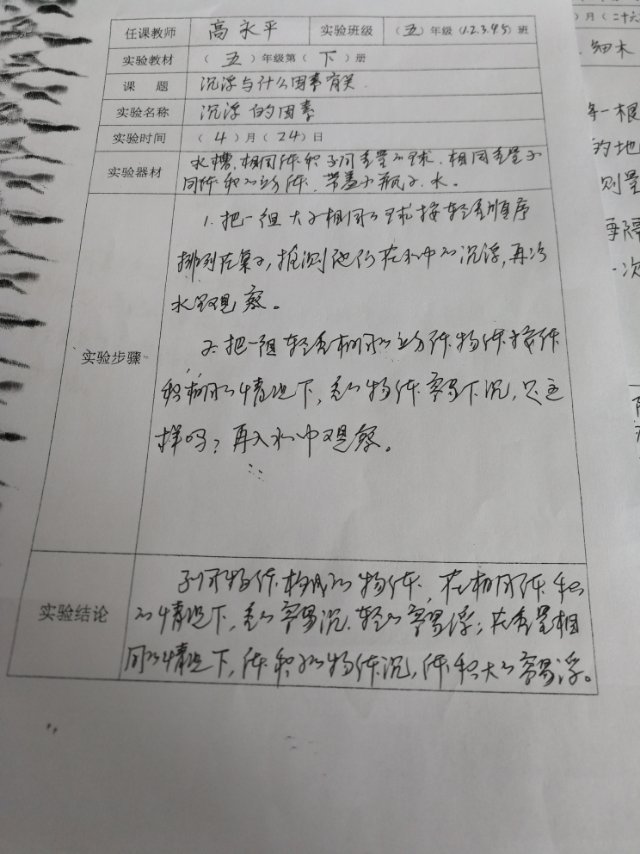 任课教师 高永平 实验班级 (五)年级(1.2.3.4.5)班
实验教材 (五)年级第(下)册
课 题 沉浮与什么因素有关
实验名称 沉浮的因素
实验时间 (4)月(24)日
实验器材 水槽、相同体积不同重量的球、相同重量不
同体积的立方体、带盖小瓶子、水。
实验步骤
1.把一组大小相同的球按轻重顺序
排列在桌子,推测他们在水中的沉浮,再入
水中观察。
2.把一组轻重相同的立方体物体按体
积相同的情况下,重的物体容易下沉,是这
样吗?再入水中观察。
实验结论
不同物体构成的物体,在相同体积
的情况下,重的容易沉、轻的容易浮;在重量相
同的情况下,体积小的物体沉,体积大的容易浮。
)月(二十六
细木
一根
的地
则量
一次